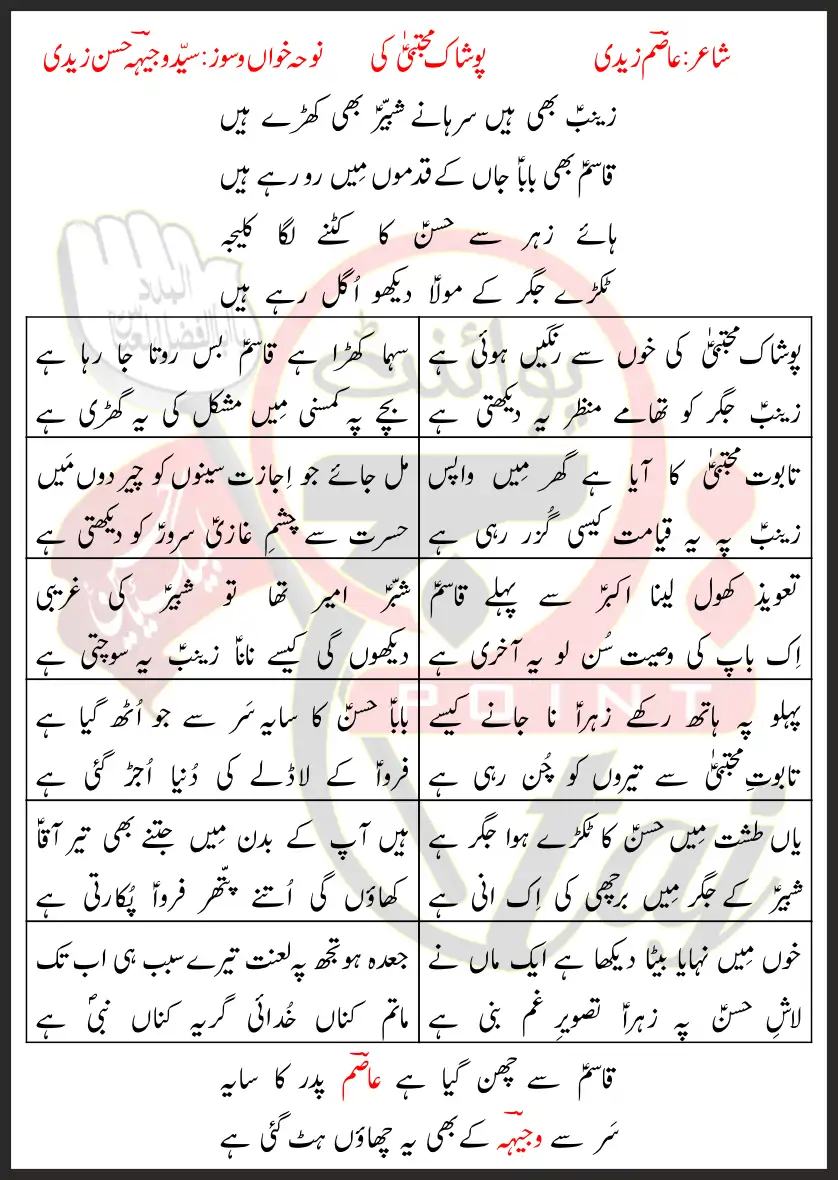 شاعر: عاصمؔ زیدی پوشاک مجتبیٰؑ کی نوحہ خواں و سوز: سیّد وجیہہؔ حسن زیدی
زینبؑ بھی ہیں سرہانے شبیرؑ بھی کھڑے ہیں
قاسمؑ بھی باباؑ جاں کے قدموں مِیں رو رہے ہیں
ہائے زہر سے حسنؑ کا کٹنے لگا کلیجہ
ٹکڑے جگر کے مولاؑ دیکھو اُگل رہے ہیں
پوشاک مجتبیٰؑ کی خوں سے رنگیں ہوئی ہے
زینبؑ جگر کو تھامے منظر یہ دیکھتی ہے
سہما کھڑا ہے قاسمؑ بس روتا جا رہا ہے
بچے پہ کمسنی مِیں مشکل کی یہ گھڑی ہے
تابوت مجتبیٰؑ کا آیا ہے گھر مِیں واپس
زینبؑ پہ یہ قیامت کیسی گُزر رہی ہے
مل جائے جو اِجازت سینوں کو چیر دوں مَیں
حسرت سے چشمِ غازیؑ سرورؑ کو دیکھتی ہے
تعویذ کھول لینا اکبرؑ سے پہلے قاسمؑ
اِک باپ کی وصیت سُن لو یہ آخری ہے
شبّرؑ امیر تھا تو شبیرؑ کی غریبی
دیکھوں گی کیسے ناناؐ زینبؑ یہ سوچتی ہے
پہلو پہ ہاتھ رکھے زہراؑ نا جانے کیسے
تابوتِ مجتبیٰؑ سے تیروں کو چُن رہی ہے
باباؑ حسنؑ کا سایہ سَر سے جو اُٹھ گیا ہے
فرواؑ کے لاڈلے کی دُنیا اُجڑ گئی ہے
یاں طشت مِیں حسنؑ کا ٹکڑے ہوا جگر ہے
شبیرؑ کے جگر مِیں برچھی کی اِک انی ہے
ہیں آپ کے بدن مِیں جتنے بھی تیر آقاؑ
کھاؤں گی اُتنے پتّھر فرواؑ پُکارتی ہے
خوں مِیں نہایا بیٹا دیکھا ہے ایک ماں نے
لاشِ حسنؑ پہ زہراؑ تصویرِ غم بنی ہے
جعدہ ہو تجھ پہ لعنت تیرے سبب ہی اب تک
ماتم کناں خُدائی گریہ کناں نبیؐ ہے
قاسمؑ سے چھن گیا ہے عاصمؔ پدر کا سایہ
سَر سے وجیہہؔ کے بھی یہ چھاؤں ہٹ گئی ہے
البلاد
پوائنٹ
POINT
taj